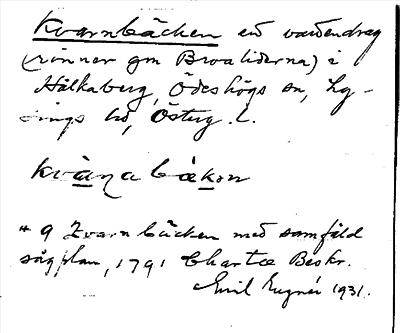 Kvarnbäcken ett vattendrag
(rinner gm Broaliderna) i
Hålkaberg, Ödeshögs sn, Ly-
sings hd, Österg. l.
kvànabäkan
* 9 Kvarnbäcken med samfäld
sågplan, 1791 Charta Beskr.
Emil 1931.